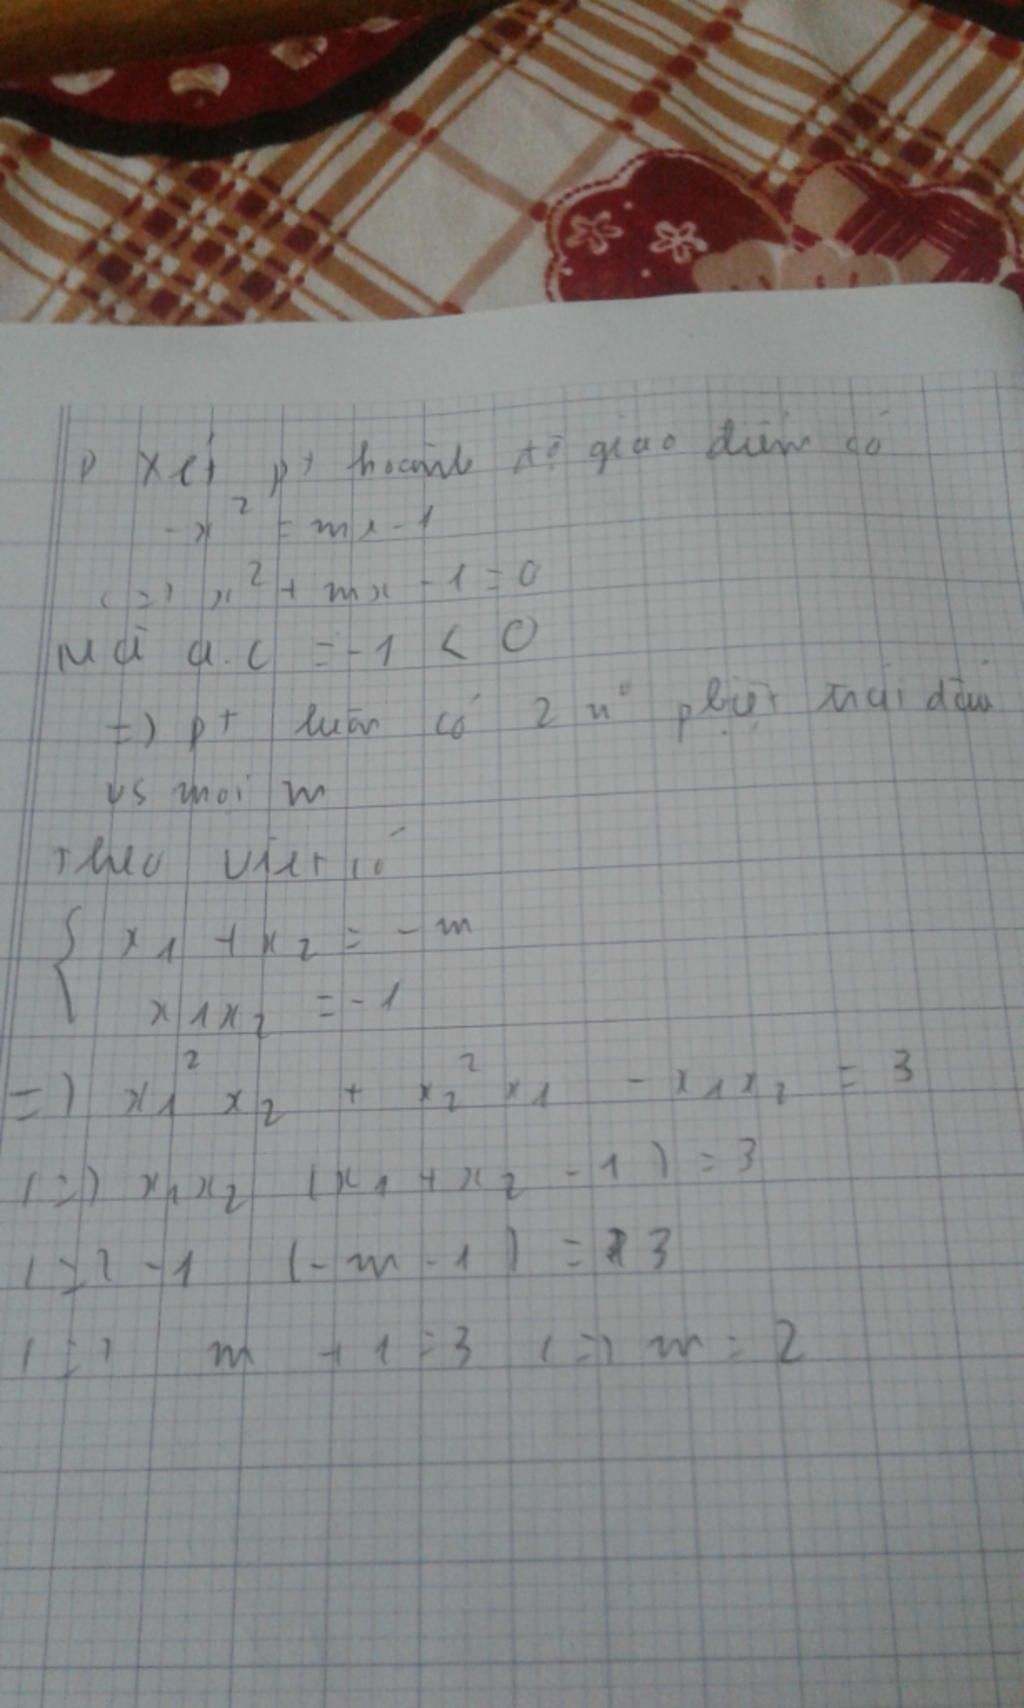 Xét pt hoành độ giao điểm có
-x² = mx - 1
(=) x² + mx - 1 = 0
Mà a.c = -1 < 0
=) pt luôn có 2 n° pbiệt trái dấu
vs mọi m
Theo viet có
{ x₁ + x₂ = -m
x₁x₂ = -1
=) x₁²x₂ + x₂²x₁ - x₁x₂ = 3
(=) x₁x₂ (x₁ + x₂ - 1) = 3
(=) -1 (-m - 1) = 3
(=) m + 1 = 3 (=) m = 2